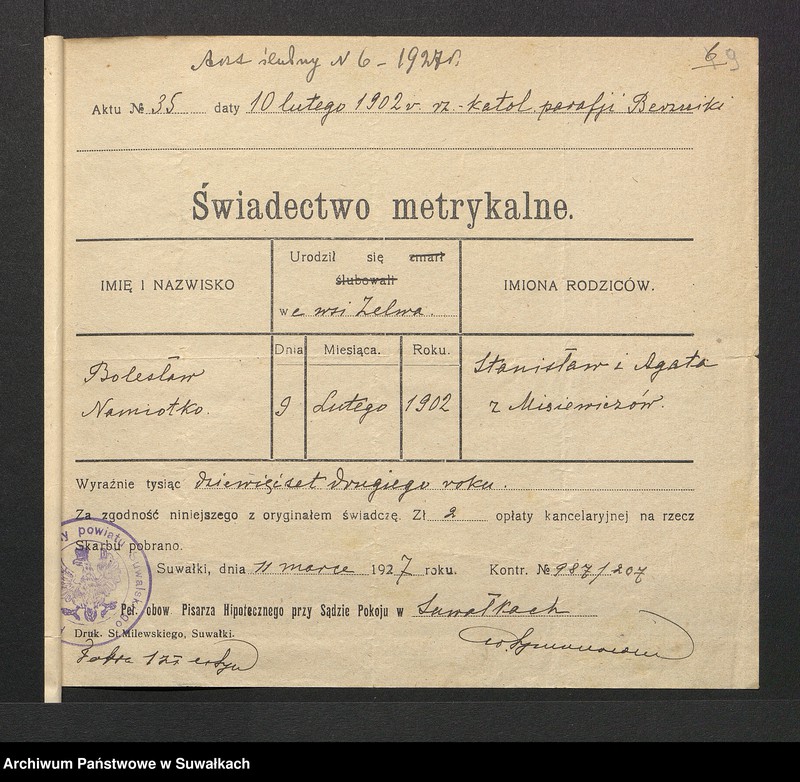 Akt ślubny N 6 – 1927 r.
6 9
Aktu № 35 daty 10 lutego 1902 r rz.-katol. parafji Berzniki
Świadectwo metrykalne.
IMIĘ I NAZWISKO
Urodził się zmarł
ślubowali
we wsi Zelwa.
IMIONA RODZICÓW.
Dnia Miesiąca. Roku.
Bolesław
Namiotko.
9 Lutego 1902
Stanisław i Agata
z Misiewiczów.
Wyraźnie tysiąc dziewięćset drugiego roku.
Za zgodność niniejszego z oryginałem świadczę. Zł 2 opłaty kancelaryjnej na rzecz
Skarbu pobrano.
Suwałki, dnia 11 marca 1927 roku. Kontr. № 987/207
Peł. obow Pisarza Hipotecznego przy Sądzie Pokoju w Suwałkach
Druk. St. Milewskiego, Suwałki.
powiatu
Archiwum Państwowe w Suwałkach